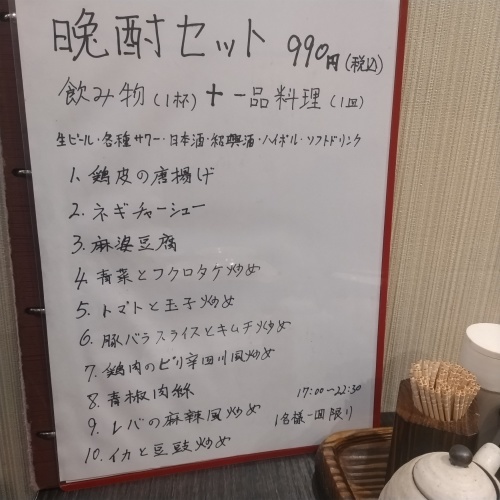 晩酌セット 990円(税込)
飲み物(1杯)+一品料理(1皿)
生ビール・各種サワー・日本酒・紹興酒・ハイボール・ソフトドリンク
1. 鶏皮の唐揚げ
2. ネギチャーシュー
3. 麻婆豆腐
4. 青菜とフクロタケ炒め
5. トマトと玉子炒め
6. 豚バラスライスとキムチ炒め
7. 鶏肉のピリ辛四川風炒め
8. 青椒肉絲
9. レバの麻辣風炒め
10. イカと豆豉炒め
17:00～22:30
1名様一回限り